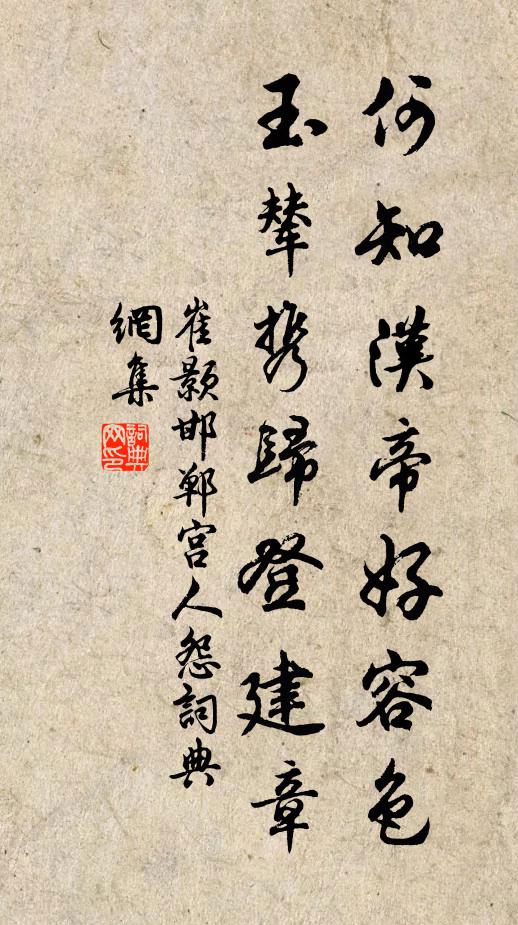 何知漢帝好容色
玉輦携歸登建章
崔顥邯鄲宮人怨詞典
網集
詞典
网印